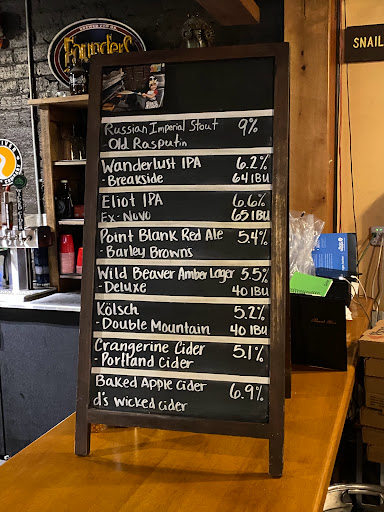 Founders
SNAIL
Russian Imperial Stout 9%
- Old Rasputin
Wanderlust IPA 6.2%
- Breakside 64 IBU
Eliot IPA 6.6%
Ex-Novo 65 IBU
Point Blank Red Ale 5.4%
- Barley Browns
Wild Beaver Amber Lager 5.5%
- Deluxe 40 IBU
Kölsch 5.2%
- Double Mountain 40 IBU
Crangerine Cider 5.1%
- Portland Cider
Baked Apple Cider 6.9%
d's wicked cider